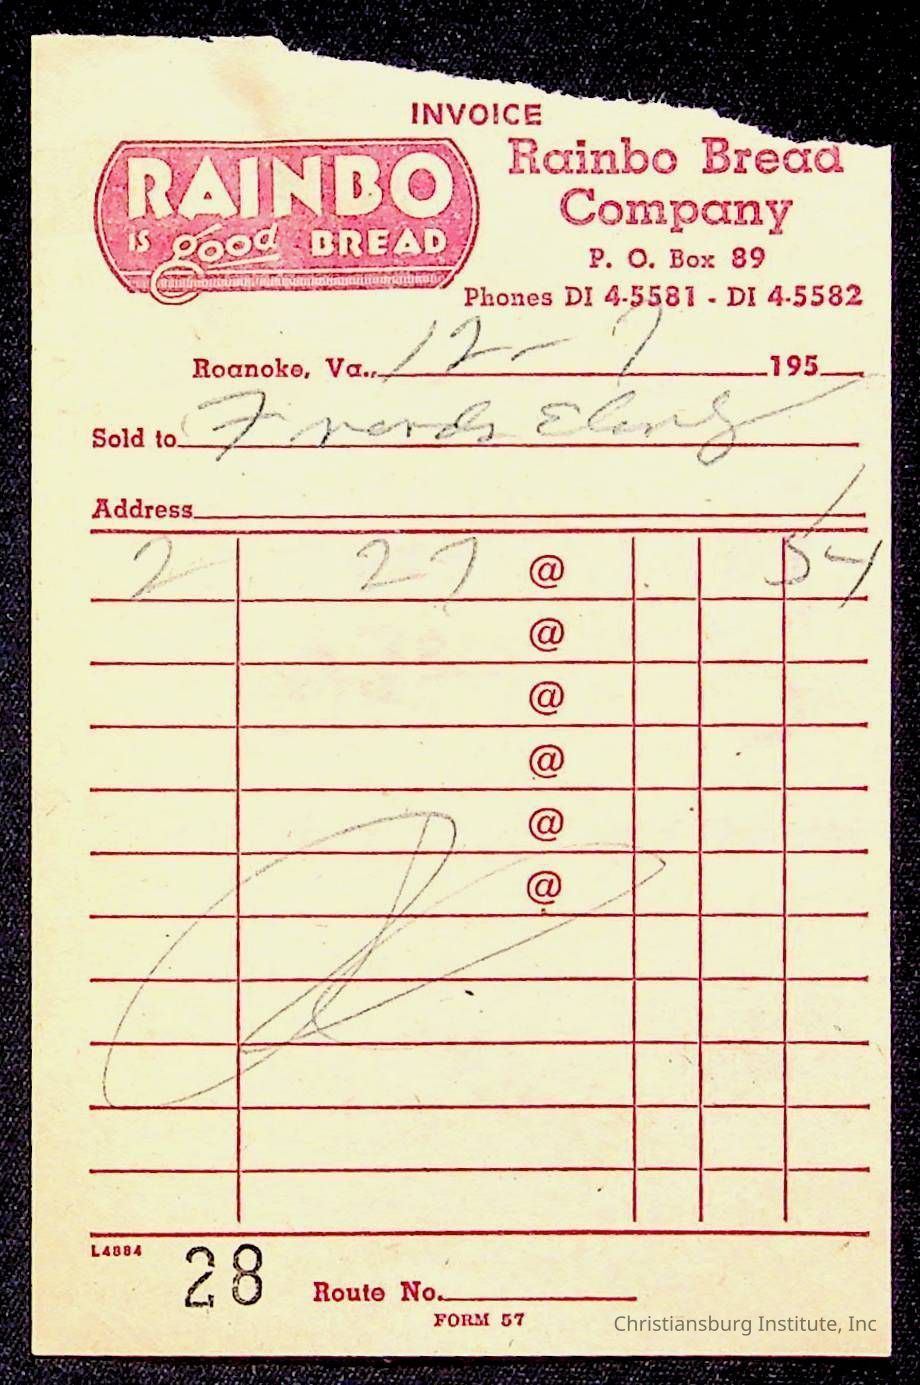 INVOICE
RAINBO
IS good BREAD
Rainbo Bread
Company
P. O. Box 89
Phones DI 4-5581 - DI 4-5582
Roanoke, Va., 12-7 195
Sold to
Address
2 27 @ 54
@
@
@
@
@
L4884
28 Route No.
FORM 57
Christiansburg Institute, Inc